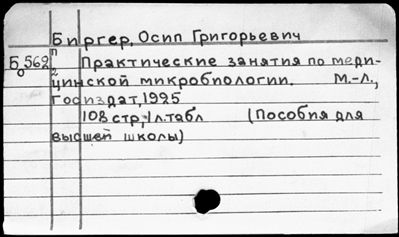 Биргер, Осип Григорьевич
Б 562 п Практические занятия по меди-
о 2 цинской микробиологии. М.-Л.,
Госиздат, 1925
108 стр., 1 л. табл (Пособия для
высшей школы)